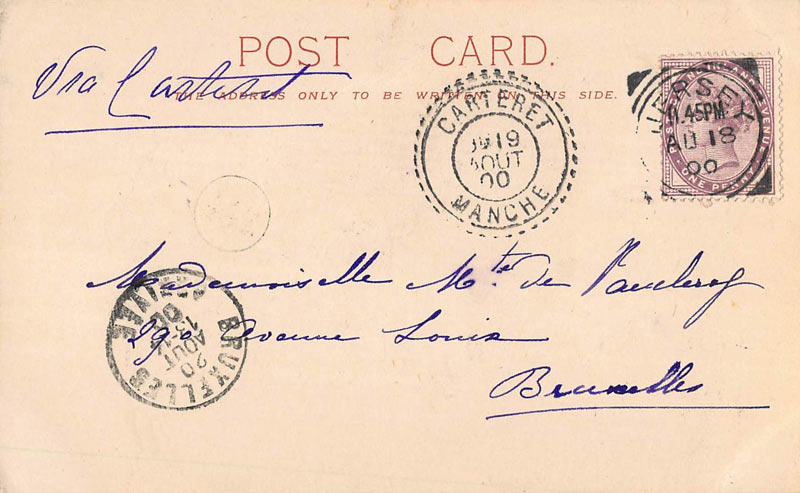 POST CARD.
Via Carteret
THE ADDRESS ONLY TO BE WRITTEN ON THIS SIDE.
CARTERET
19
AOUT
00
MANCHE
JERSEY
11.45PM
AU 18
00
POSTAGE AND INLAND REVENUE
ONE PENNY
Mademoiselle Mte de Vaucleroy
290 Avenue Louise
Bruxelles
BRUXELLES
20
AOUT
13-